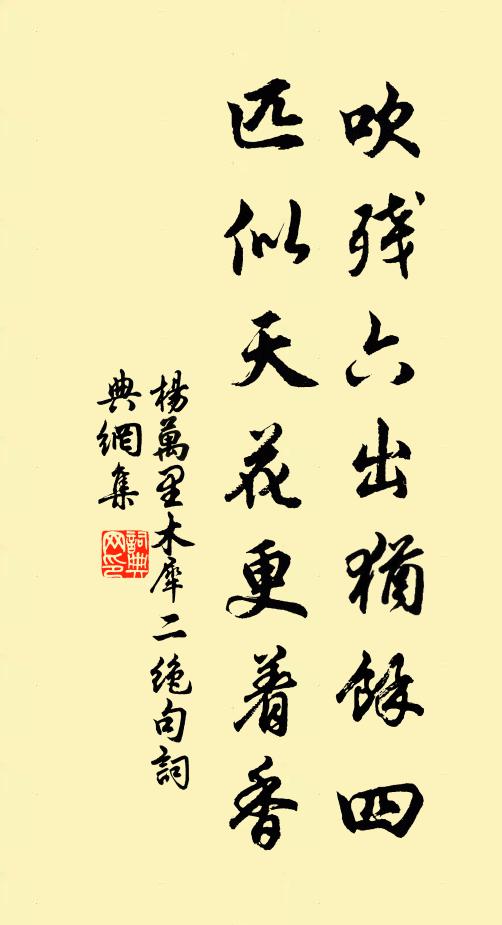 吹残六出猶餘四
匹似天花更着香
楊萬里木犀二绝句詞
典網集
詞典
网印